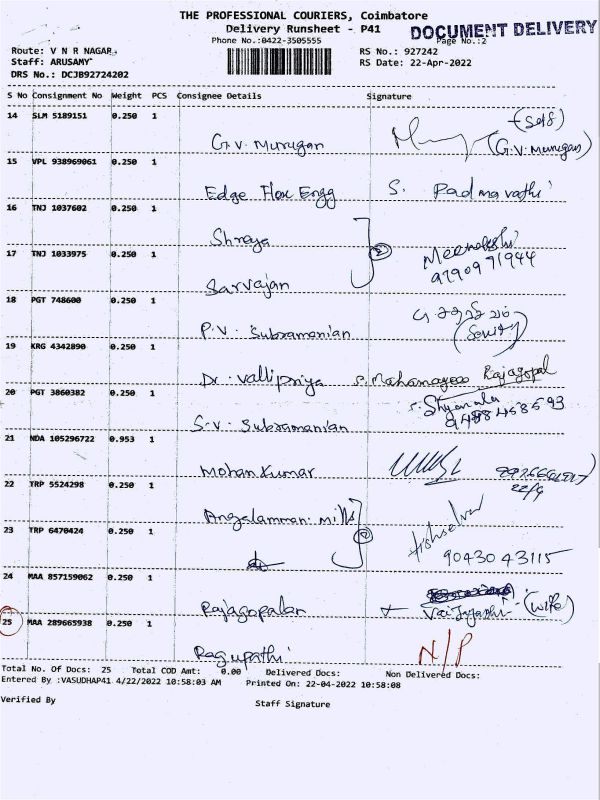 THE PROFESSIONAL COURIERS, Coimbatore
Delivery Runsheet - P41
DOCUMENT DELIVERY
Phone No.:0422-3505555
Page No.:2
Route: V N R NAGAR
Staff: ARUSAMY
DRS No.: DCJB92724202
RS No.: 927242
RS Date: 22-Apr-2022
S No Consignment No Weight PCS Consignee Details Signature
14 SLM 5189151 0.250 1
G.V. Murugan (Self) (G.V. Murugan)
15 VPL 938969061 0.250 1
Edge Flex Engg S. Padmavathi
16 TNJ 1037602 0.250 1
Shreya
17 TNJ 1033975 0.250 1
Sarvajan ② Meenakshi 9790971944
18 PGT 748600 0.250 1
P.V. Subramanian
19 KRG 4342890 0.250 1
Dr. Vallipriya Rajagopal
20 PGT 3860382 0.250 1
S.V. Subramanian Shyamala 9488458593
21 NDA 105296722 0.953 1
Mohan Kumar 22/4
22 TRP 5524298 0.250 1
Angalamman Mills
23 TRP 6470424 0.250 1
② 90430 43115
24 MAA 857159062 0.250 1
Rajagopalan (Wife)
25 MAA 289665938 0.250 1
Ragupathi N/P
Total No. Of Docs: 25 Total COD Amt: 0.00 Delivered Docs: Non Delivered Docs:
Entered By :VASUDHAP41 4/22/2022 10:58:03 AM Printed On: 22-04-2022 10:58:08
Verified By Staff Signature